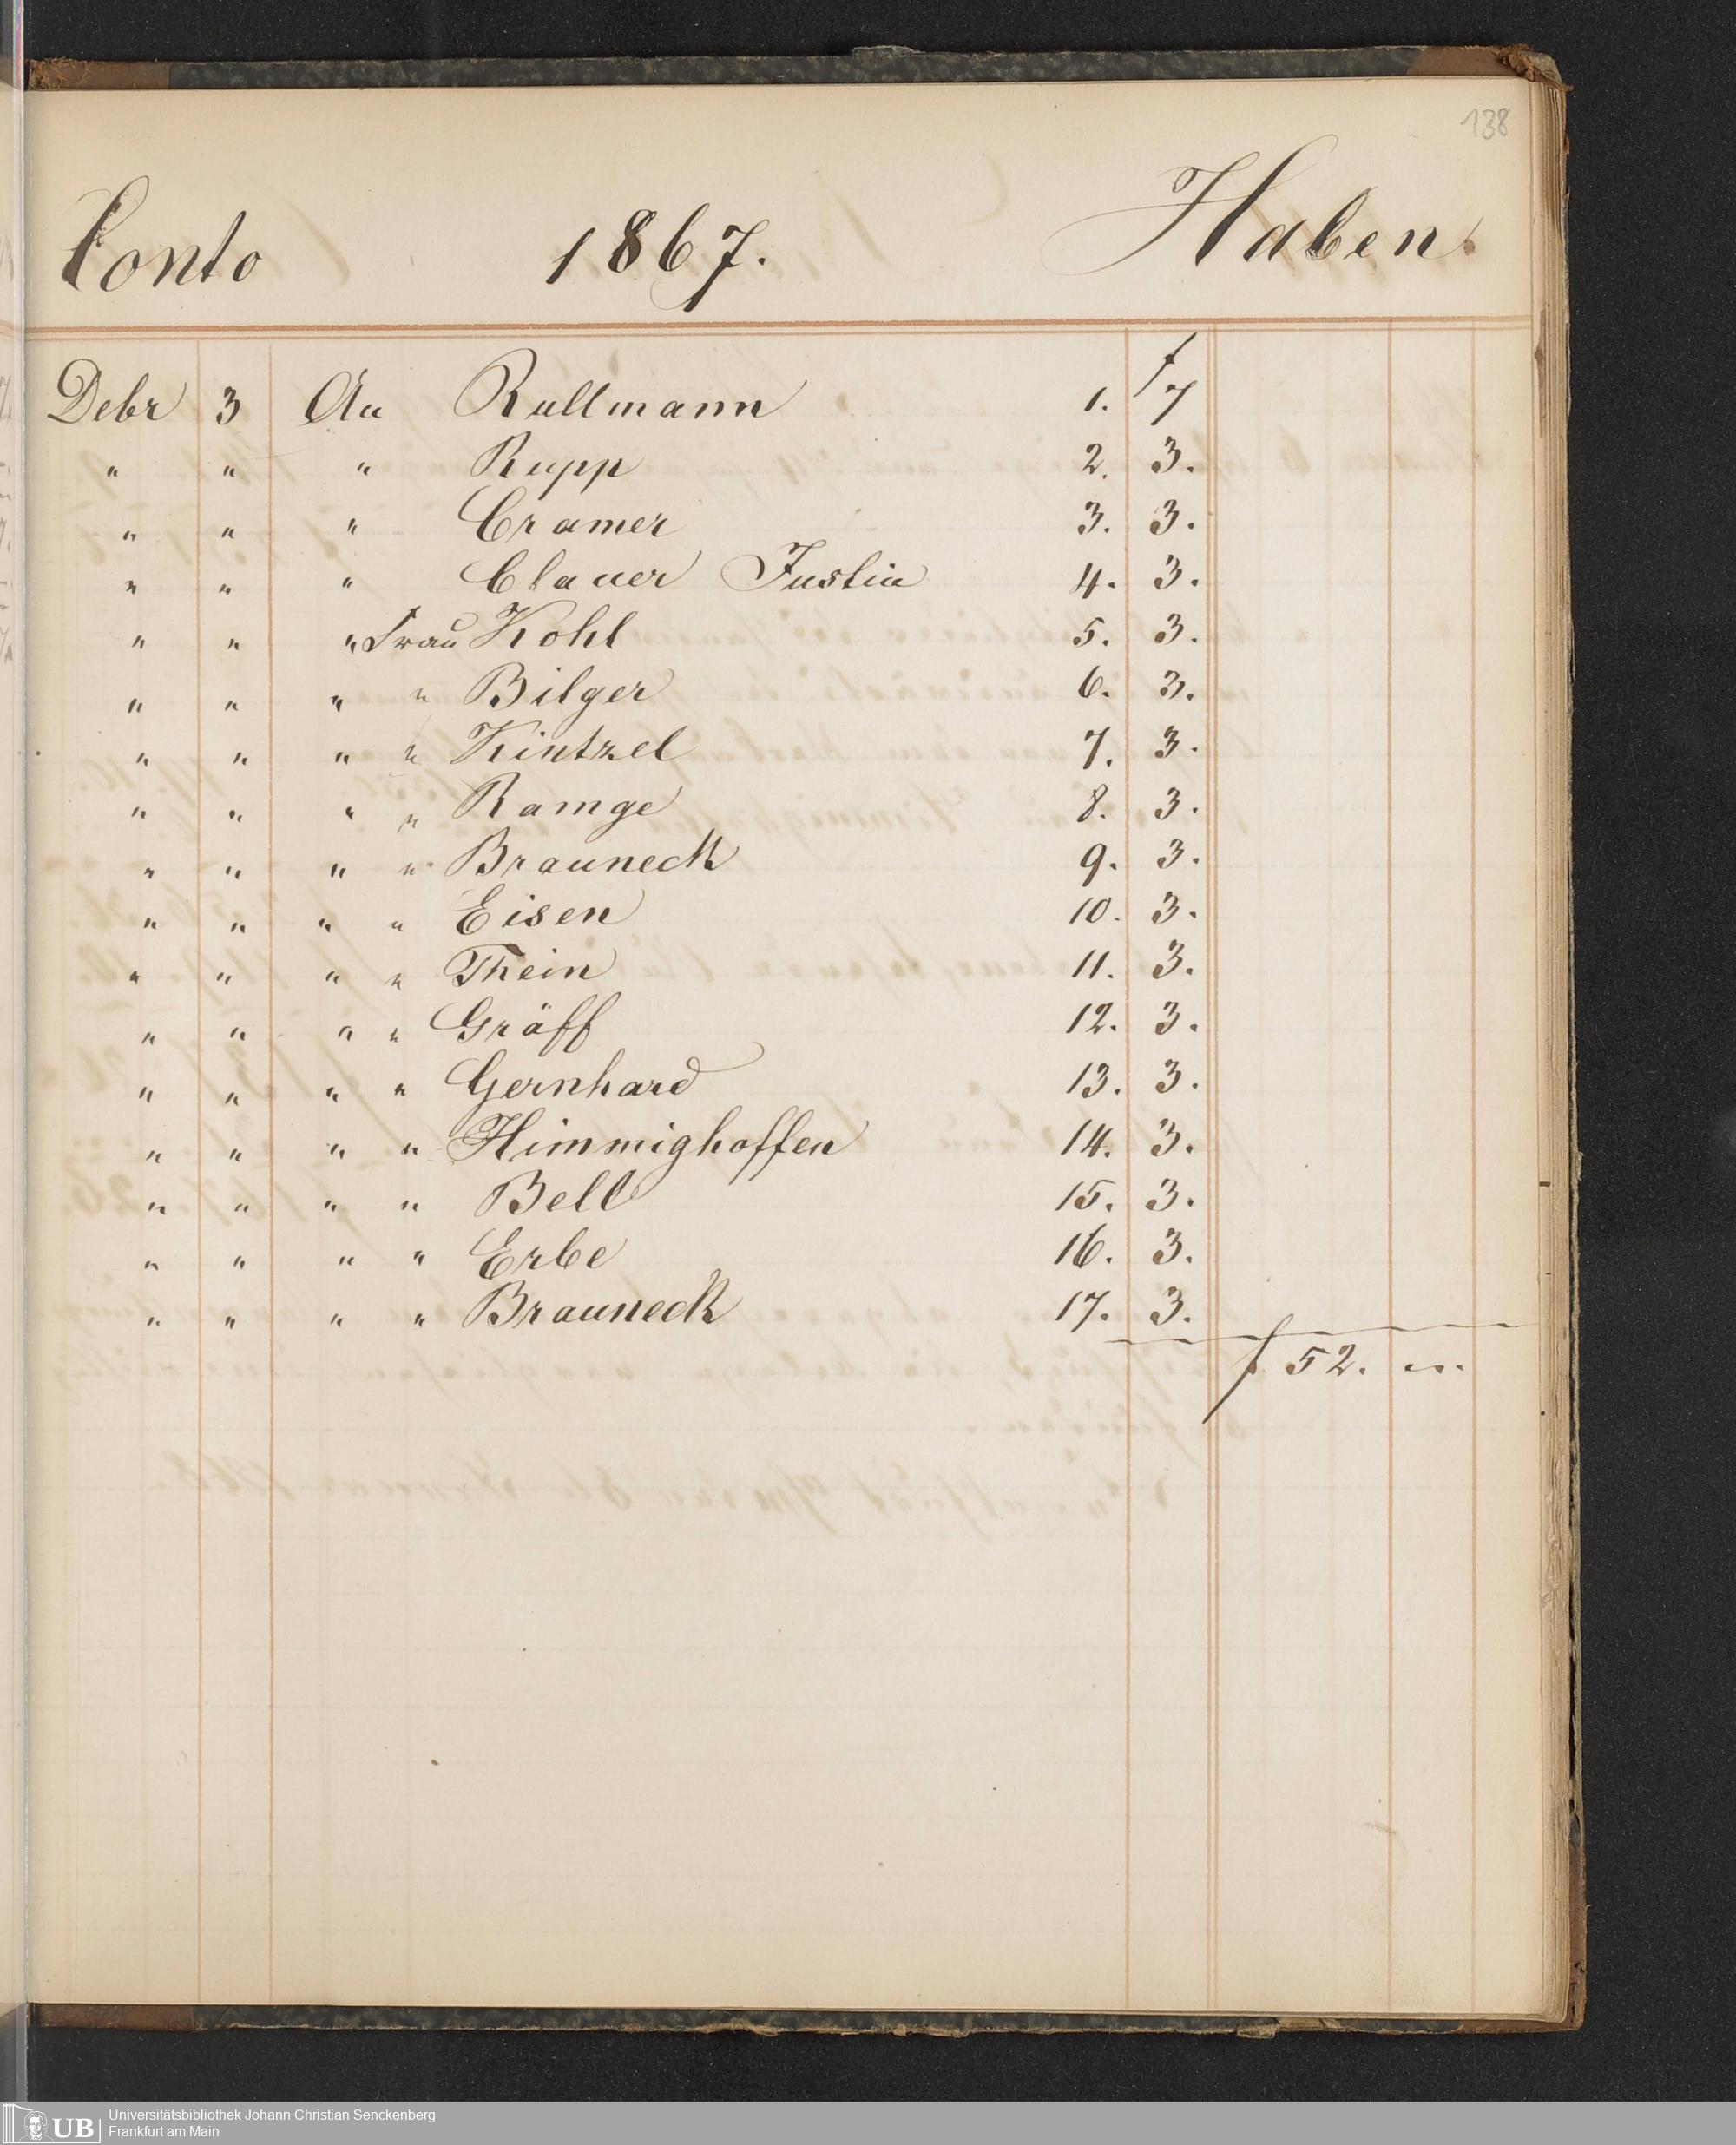 138
Conto 1867. Haben.
Debr 3 An Rullmann 1. f 7
" " " Rupp 2. 3.
" " " Cramer 3. 3.
" " " Clauer Justin 4. 3.
" " " Frau Kohl 5. 3.
" " " " Bilger 6. 3.
" " " " Kintzel 7. 3.
" " " " Ramge 8. 3.
" " " " Brauneck 9. 3.
" " " " Eisen 10. 3.
" " " " Thein 11. 3.
" " " " Gräff 12. 3.
" " " " Gernhard 13. 3.
" " " " Himmighoffen 14. 3.
" " " " Bell 15. 3.
" " " " Erbe 16. 3.
" " " " Brauneck 17. 3.
f 52. ".
UB Universitätsbibliothek Johann Christian Senckenberg
Frankfurt am Main